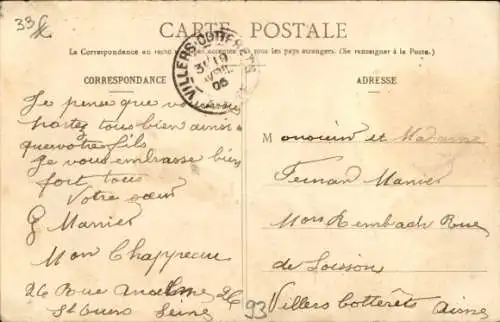 33
CARTE POSTALE
La Correspondance au recto n'est pas acceptée par tous les pays étrangers. (Se renseigner à la Poste.)
VILLERS-COTTERETS
19
AVRIL
06
CORRESPONDANCE
Je pense que vous vous
portez tous bien ainsi
que votre fils
Je vous embrasse bien
fort tous
Votre sœur
G Manier
Mon Chappreau
26 Rue 26
St Ouen Seine
ADRESSE
Monsieur et Madame
Fernan Manier
Mon Rembach Rue
de Soisson
93 Villers Cotterêts Aisne